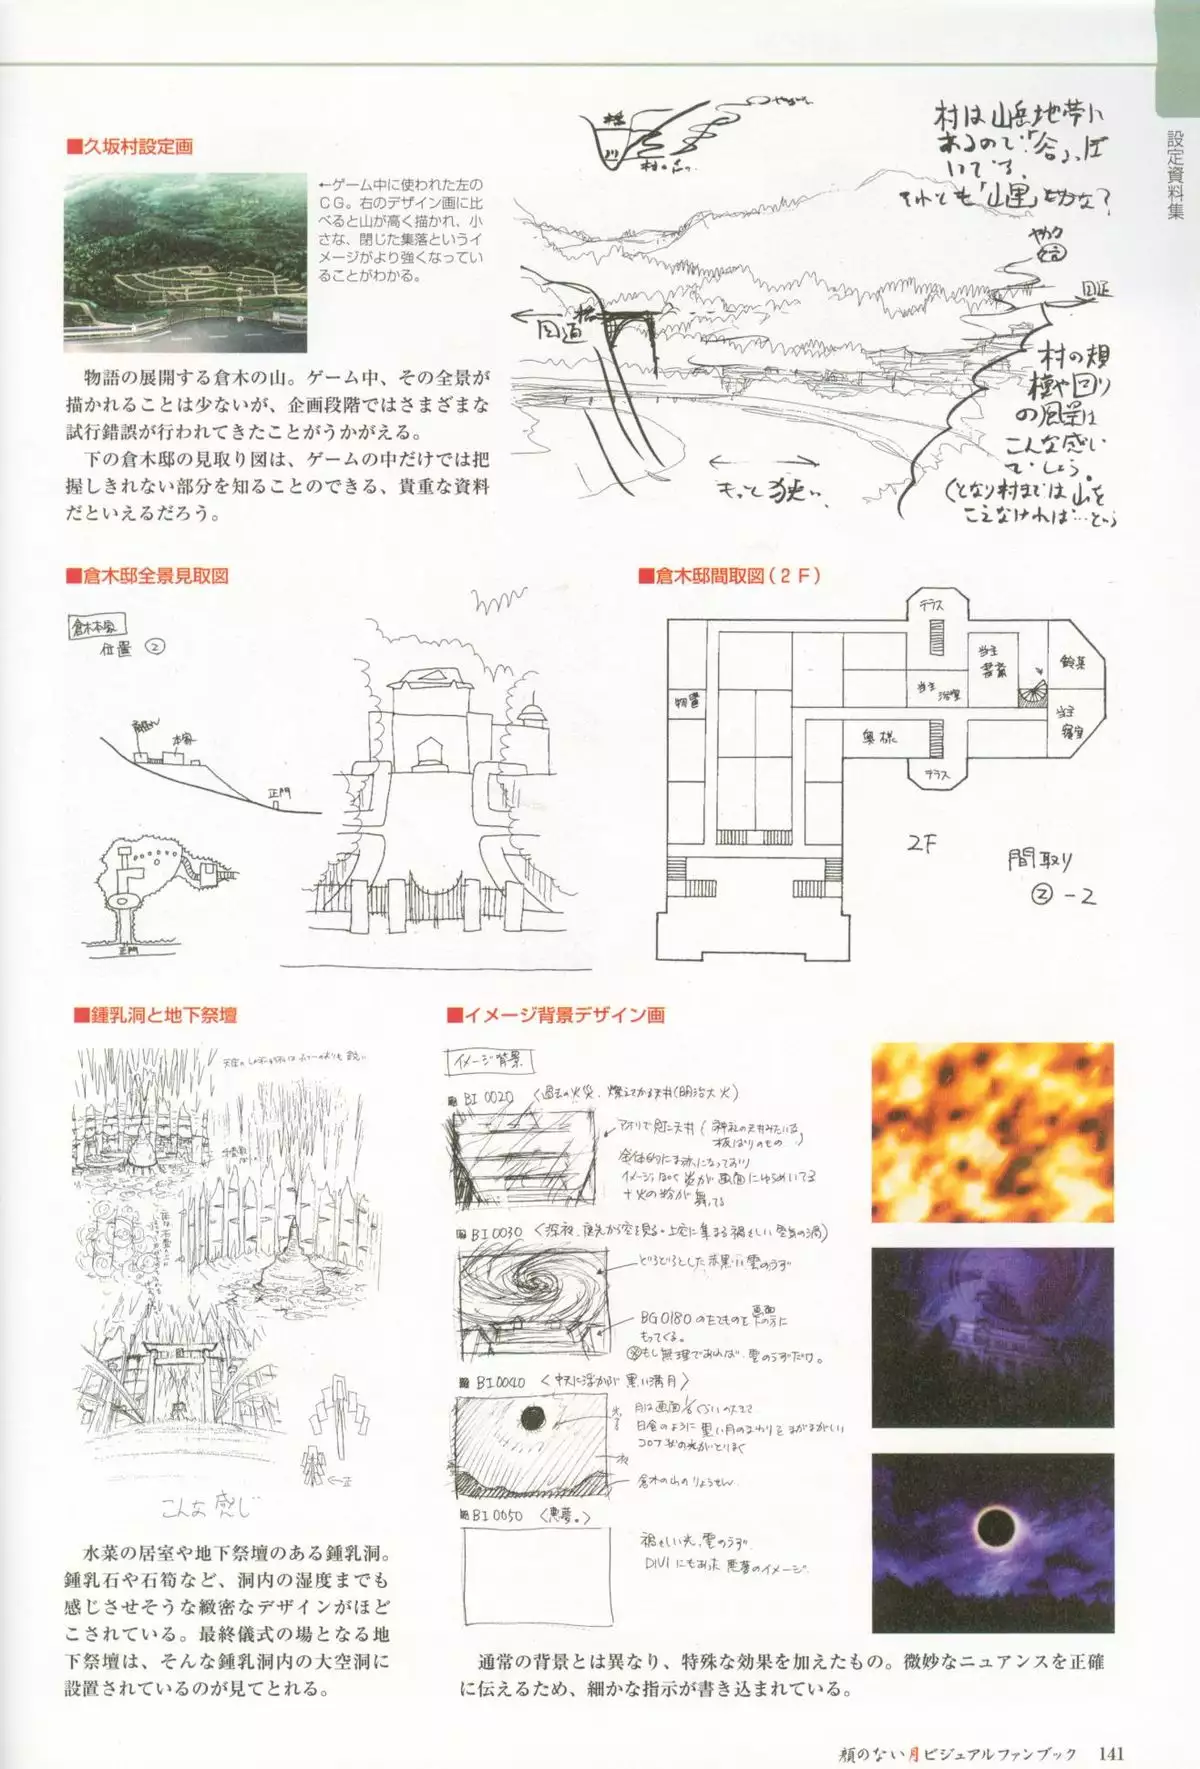 設定資料集
■久坂村設定画
←ゲーム中に使われた左の
CG。右のデザイン画に比
べると山が高く描かれ、小
さな、閉じた集落というイ
メージがより強くなってい
ることがわかる。
物語の展開する倉木の山。ゲーム中、その全景が
描かれることは少ないが、企画段階ではさまざまな
試行錯誤が行われてきたことがうかがえる。
下の倉木邸の見取り図は、ゲームの中だけでは把
握しきれない部分を知ることのできる、貴重な資料
だといえるだろう。
橋
川
村は山岳地帯に
あるので「谷」に
それとも「山里」とかな?
国道
橋
もっと狭い
村の規
模や回り
の風景は
こんな感じ
でしょう。
(となり村までは山を
こえなければ…という
■倉木邸全景見取図
倉木本家
位置 ②
本家
正門
正門
■倉木邸間取図(2F)
テラス
当主
書斎
鈴菜
物置
当主
浴室
当主
寝室
奥様
テラス
2F
間取り
②-2
■鍾乳洞と地下祭壇
こんな感じ
水菜の居室や地下祭壇のある鍾乳洞。
鍾乳石や石筍など、洞内の湿度までも
感じさせそうな緻密なデザインがほど
こされている。最終儀式の場となる地
下祭壇は、そんな鍾乳洞内の大空洞に
設置されているのが見てとれる。
■イメージ背景デザイン画
イメージ背景
BI0020 〈過去の火災、燃えてかる天井(明治大火)
アオリで見た天井(神社の天井みたいな
板ばりのもの)
全体的にまっ赤になっており
イメージっぽく炎が画面にゆらめいてる
+火の粉が舞ってる
BI0030 〈深夜、庭先から空を見る。上空に集まる禍々しい空気の渦〉
どろどろとした赤黒い雲のうず
BG0180のたてものを画面下の方に
もってくる。
※もし無理であれば、雲のうずだけ。
BI0040 〈中天に浮かぶ黒い満月〉
月は画面1/6ぐらいの大きさで
日食のように黒い月のまわりをまがまがしい
コロナ状の光がとりまく
倉木の山のりょうせん
BI0050 〈悪夢。〉
禍々しい光、雲のうず
DIVIにもあった悪夢のイメージ
通常の背景とは異なり、特殊な効果を加えたもの。微妙なニュアンスを正確
に伝えるため、細かな指示が書き込まれている。
顔のない月ビジュアルファンブック 141